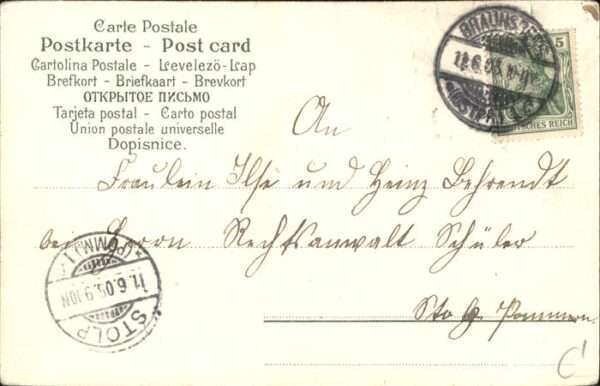 Carte Postale
Postkarte - Post card
Cartolina Postale - Levelező-Lap
Brefkort - Briefkaart - Brevkort
ОТКРЫТОЕ ПИСЬМО
Tarjeta postal - Carto postal
Union postale universelle
Dopisnice.
5
DEUTSCHES REICH
An
Fräulein Ilse und Heinz Behrendt
bei Herrn Rechtsanwalt Schüler
Stolp Pommern.
STOLP
(POMM) 1
11.6.05.9-10N